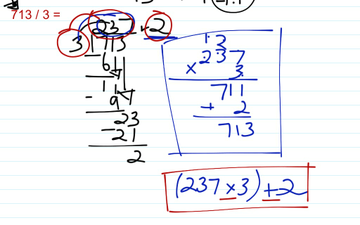 713 / 3 =
237 + 2
3 713
- 6
11
- 9
23
- 21
2
1 2
237
× 3
711
+ 2
713
(237 × 3) + 2